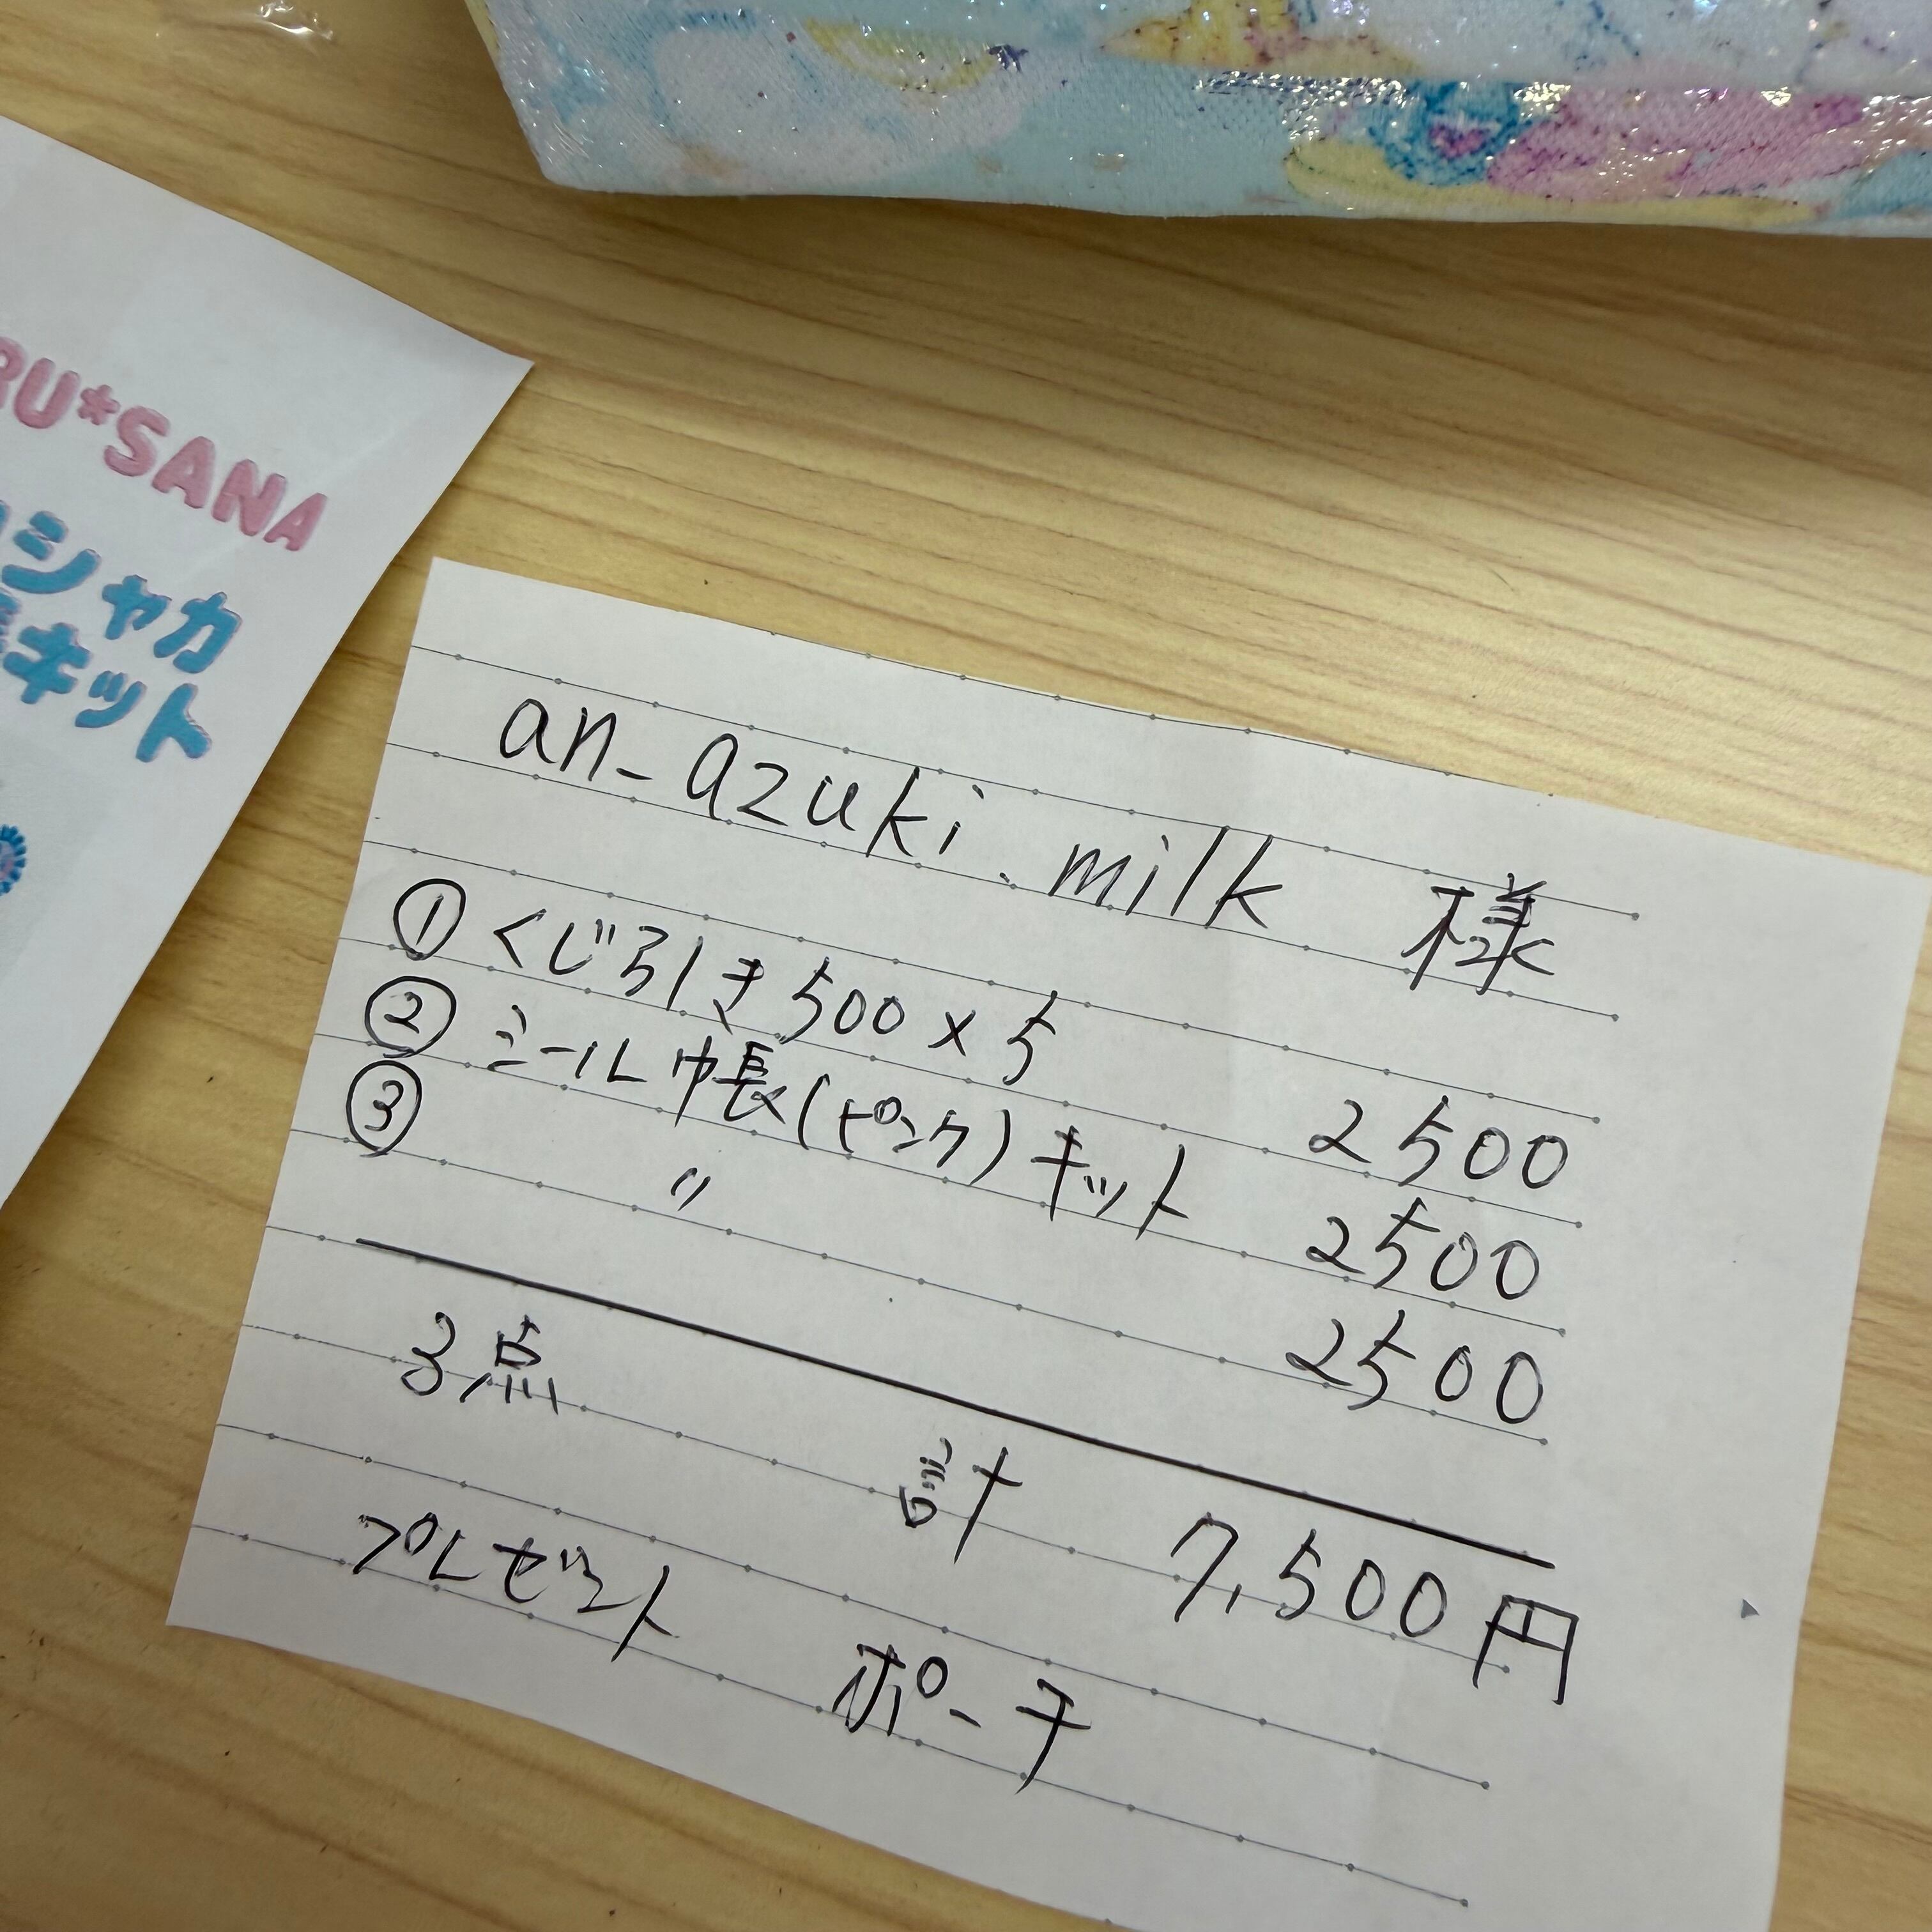 RU*SANA
シャカ
キット
an_azuki.milk 様
① くじ引き 500×5 2500
② シール帳(ピンク)キット 2500
③ 〃 2500
3点 計 7,500円
プレゼント ポーチ